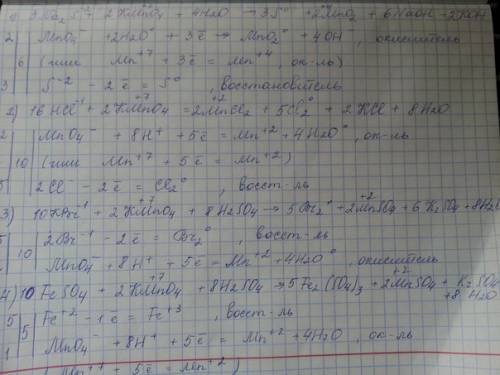 1) 3Na₂S⁻² + 2KMnO₄ + 4H₂O → 3S⁰ + 2MnO₂ + 6NaOH + 2KOH
2 | MnO₄⁻ + 2H₂O⁰ + 3ē → MnO₂⁰ + 4OH⁻, окислитель
6 (или Mn⁺⁷ + 3ē = Mn⁺⁴, ок-ль)
3 | S⁻² - 2ē = S⁰, восстановитель
2) 16HCl⁻¹ + 2KMn⁺⁷O₄ = 2Mn⁺²Cl₂ + 5Cl₂⁰ + 2KCl + 8H₂O
2 | MnO₄⁻ + 8H⁺ + 5ē = Mn⁺² + 4H₂O⁰, ок-ль
10 (или Mn⁺⁷ + 5ē = Mn⁺²)
5 | 2Cl⁻ - 2ē = Cl₂⁰, восст-ль
3) 10KBr⁻¹ + 2KMn⁺⁷O₄ + 8H₂SO₄ → 5Br₂⁰ + 2Mn⁺²SO₄ + 6K₂SO₄ + 8H₂O
5 | 10 | 2Br⁻¹ - 2ē = Br₂⁰, восст-ль
MnO₄⁻ + 8H⁺ + 5ē = Mn⁺² + 4H₂O⁰, окислитель
4) 10FeSO₄ + 2KMn⁺⁷O₄ + 8H₂SO₄ → 5Fe₂(SO₄)₃ + 2Mn⁺²SO₄ + K₂SO₄
+ 8H₂O
5 | 5 | Fe⁺² - 1ē = Fe⁺³, восст-ль
1 | MnO₄⁻ + 8H⁺ + 5ē = Mn⁺² + 4H₂O, ок-ль
(Mn⁺⁷ + 5ē = Mn⁺²)